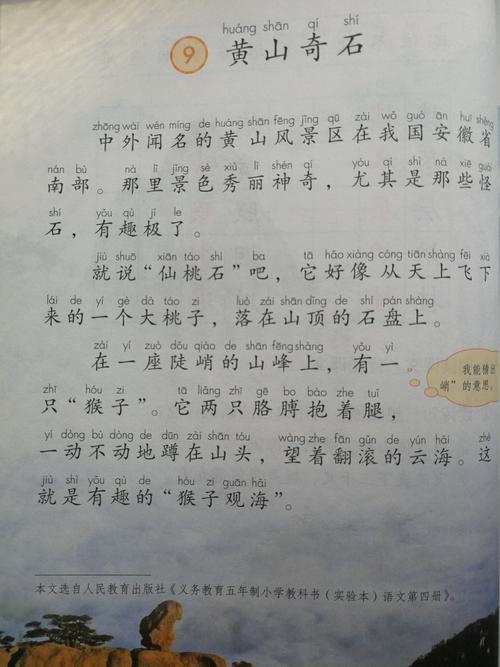 huáng shān qí shí
9 黄山奇石
zhōng wài wén míng de huáng shān fēng jǐng qū zài wǒ guó ān huī shěng
中外闻名的黄山风景区在我国安徽省
nán bù nà lǐ jǐng sè xiù lì shén qí yóu qí shì nà xiē guài
南部。那里景色秀丽神奇，尤其是那些怪
shí yǒu qù jí le
石，有趣极了。
jiù shuō xiān táo shí ba tā hǎo xiàng cóng tiān shàng fēi xià
就说“仙桃石”吧，它好像从天上飞下
lái de yí gè dà táo zi luò zài shān dǐng de shí pán shàng
来的一个大桃子，落在山顶的石盘上。
zài yí zuò dǒu qiào de shān fēng shàng yǒu yì
在一座陡峭的山峰上，有一
我能猜出
峭”的意思。
zhī hóu zi tā liǎng zhī gē bo bào zhe tuǐ
只“猴子”。它两只胳膊抱着腿，
yí dòng bú dòng de dūn zài shān tóu wàng zhe fān gǔn de yún hǎi zhè
一动不动地蹲在山头，望着翻滚的云海。这
jiù shì yǒu qù de hóu zi guān hǎi
就是有趣的“猴子观海”。
本文选自人民教育出版社《义务教育五年制小学教科书（实验本）语文第四册》。
9